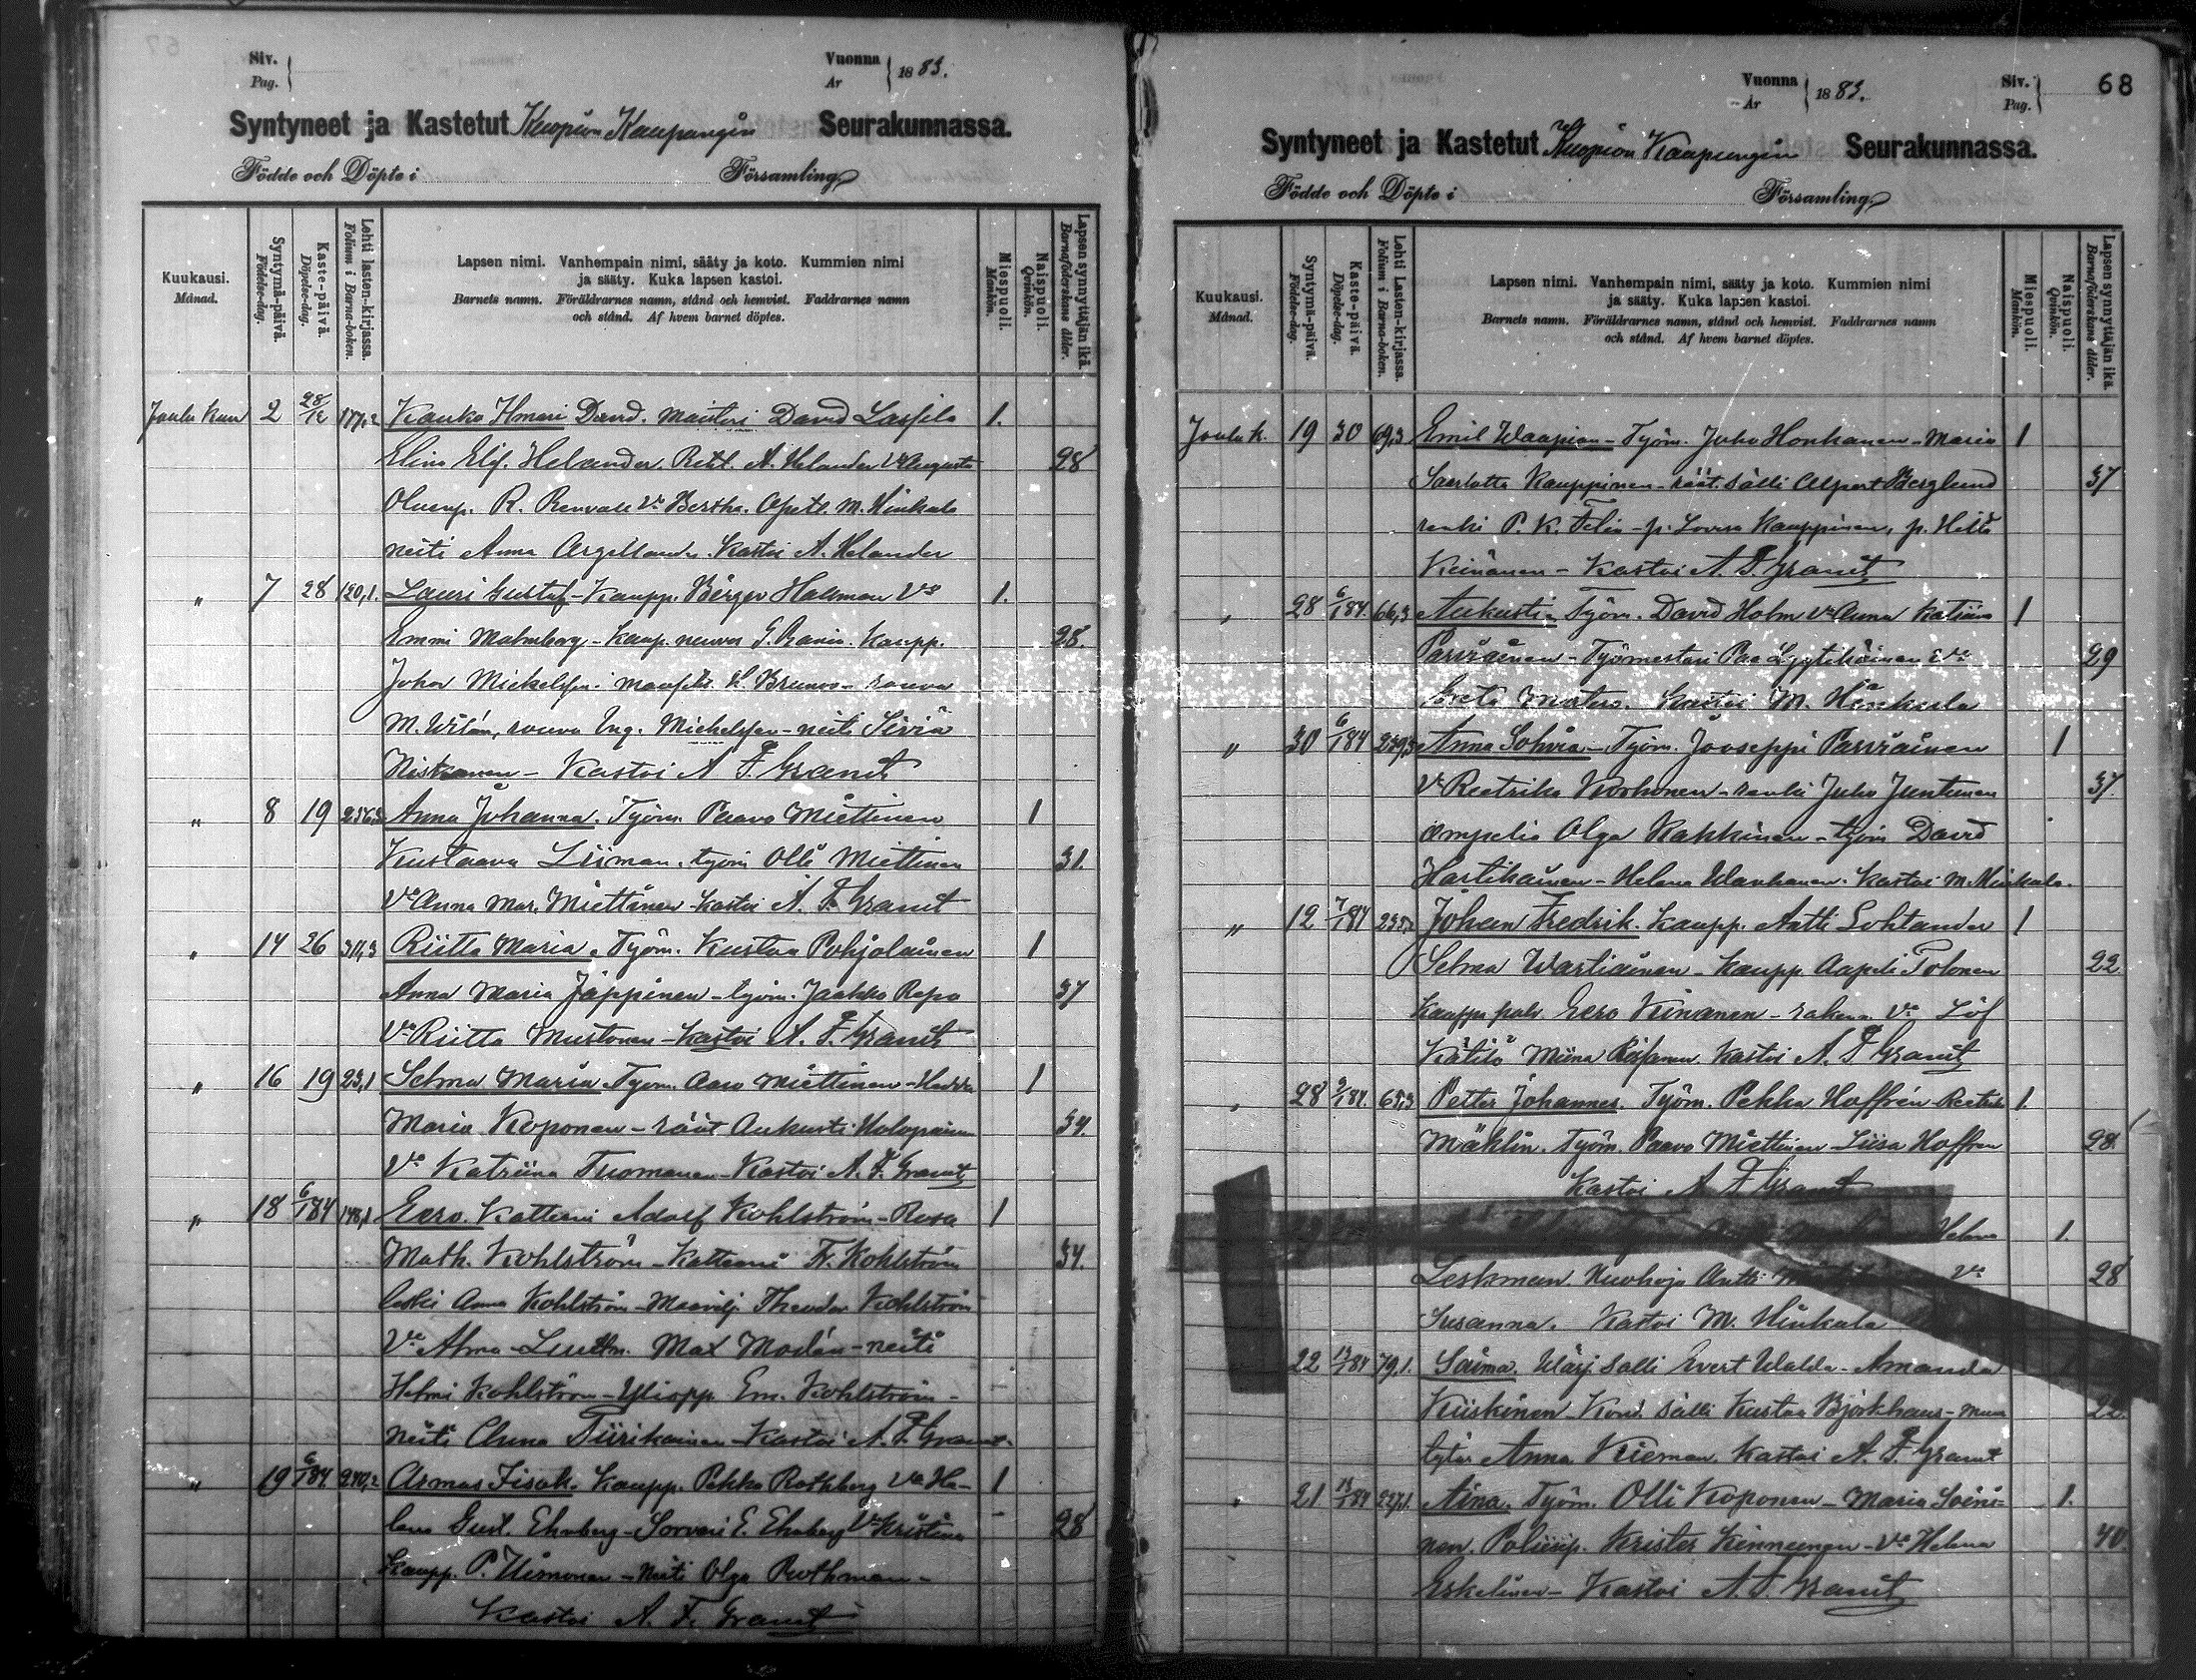 Siv.
Pag.
Vuonna
År
1883.
Syntyneet ja Kastetut Kuopion Kaupungin Seurakunnassa.
Födde och Döpte i Församling
Kuukausi.
Månad.
Syntymä-päivä.
Födelse-dag.
Kaste-päivä.
Döpelse-dag.
Lehti lasten-kirjassa.
Folium i Barna-boken.
Lapsen nimi. Vanhempain nimi, sääty ja koto. Kummien nimi
ja sääty. Kuka lapsen kastoi.
Barnets namn. Föräldrarnes namn, stånd och hemvist. Faddrarnes namn
och stånd. Af hvem barnet döptes.
Miespuoli.
Mankön.
Naispuoli.
Qvinkön.
Lapsen synnyttäjän ikä.
Barnaföderskans ålder.
Joulu kuu 2 28/12 177,2 Kauko Ilmari David. David Lassila 1.
Elina Elis. Helander. A. Helander Vo Augusta 28
R. Renvall Vo Bertha. Opett. M. Hinkula
neiti Anna Argellander. Kastoi A. Helander
" 7 28 120,1. Lauri Gustaf - Kaupp. Birger Hallman Vo 1.
Emmi Malmberg - Kaup. neuvos G. Ranin. Kaupp. 28.
Johan Mickelsson. L. Bruno - rouva
M. rouva Ing. Michelsson - neiti
Niskanen - Kastoi A. F. Granit
" 8 19 256,3 Anna Johanna. Työm. Paavo Miettinen 1
Kustaava Liiman. työm Olli Miettinen 31.
Vo Anna Mar. Miettinen - Kastoi A. F. Granit
" 14 26 311,3 Riitta Maria. Työm. Kustaa Pohjolainen 1
Anna Maria Jäppinen - työm. Jaakko Repo 37
Vo Riitta Mustonen - Kastoi A. F. Granit
" 16 19 23,1 Selma Maria. Työm. Aaro Miettinen - Hedda 1
Maria Koponen - räät. Aukusti Holopainen 34.
Vo Katriina Tuomanen - Kastoi A. F. Granit
" 18 6/1 84 148,1 Eero. Katteini Adolf Kohlström - Rosa 1
Math. Kohlström - Katteini F. Kohlström 34.
leski Anna Kohlström - Maavilj. Theodor Kohlström
Vo Alma - Max Modén - neiti
Helmi Kohlström - Yliopp. Em. Kohlström -
neiti Tiirikainen - Kastoi A. F. Granit.
" 19 6/1 84. 240,2 Armas Iisak. Kaupp. Pekka Rothberg Vo He- 1
lena Gust. Ehnberg - Sorvari E. Ehnberg Vo Kristina 28
Kaupp. P. Himonen - Neiti Olga Rothman -
Kastoi A. F. Granit
Vuonna
År
1883.
Siv.
Pag.
68
Syntyneet ja Kastetut Kuopion Kaupungin Seurakunnassa.
Födde och Döpte i Församling
Kuukausi.
Månad.
Syntymä-päivä.
Födelse-dag.
Kaste-päivä.
Döpelse-dag.
Lehti Lasten-kirjassa.
Folium i Barna-boken.
Lapsen nimi. Vanhempain nimi, sääty ja koto. Kummien nimi
ja sääty. Kuka lapsen kastoi.
Barnets namn. Föräldrarnes namn, stånd och hemvist. Faddrarnes namn
och stånd. Af hvem barnet döptes.
Miespuoli.
Mankön.
Naispuoli.
Qvinkön.
Lapsen synnyttäjän ikä.
Barnaföderskans ålder.
Jouluk. 19 30 69,3 Emil Waapian - Työm. Juho Honkanen - Maria 1
Saarlotta Kauppinen - räät. sälli Alpert Berglund 37
renki P. K. Felin - p. Lovisa Kauppinen, p. Hilta
Keinänen - Kastoi A. F. Granit
" 28 6/1 84. 66,3 Aukusti. Työm. David Holm Vo Anna Katriina 1
Parviainen - Työmestari Lyytikäinen Vo 29
Greta Kastoi M. Hinkula
" 30 6/1 84 259,3 Anna Sohvia - Työm. Jooseppi Parviainen 1
Vo Reetrika Korhonen - renki Juho Juntunen 37.
ompelia Olga Kakkinen - työm David
Hartikainen - Helena Wanhanen. Kastoi M. Hinkula.
" 12 7/1 84 Johan Fredrik. Kaupp. Antti Lohlander 1
Selma Wartiainen - Kaupp. Aapeli Tolonen 22
Kaupp. palv. Eero Keinänen - Vo Löf
Kätilö Miina Kastoi A. F. Granit
" 28 9/1 84. 65,3 Petter Johannes. Työm. Pekka Hoffrén Reetrika 1.
Mählin. Työm. Paavo Miettinen - Liisa Hoffren 28.
Kastoi A. F. Granit
Helena 1.
Leskman. Antti Vo 28
Susanna. Kastoi M. Hinkula
22 13/1 84 79,1. Saima. Wärj. sälli Evert Walda - Amanda
Kiiskinen - Kond. sälli Kustaa Björkhaus - 22
tytär Anna Kastoi A. F. Granit
" 21 227,1. Aina. Työm. Olli Koponen - Maria Soini- 1.
nen. Poliisip. Krister Kinnunen - Vo Helena 40
Eskelinen - Kastoi A. F. Granit